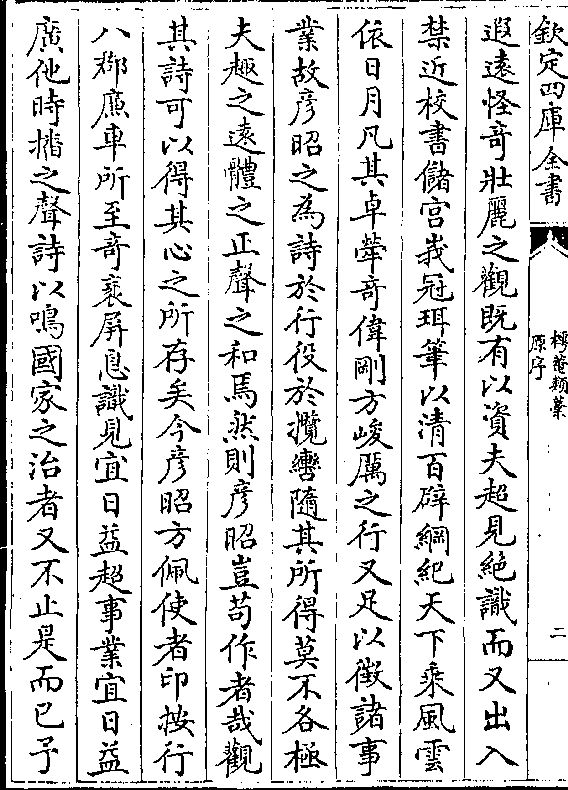 欽定四庫全書
樗菴類藁
原序
二
遐遠怪竒壯麗之觀既有以資夫超見絶識而又出入
禁近校書儲宫峩冠珥筆以清百辟綱紀天下乘風雲
依日月凡其卓犖竒偉剛方峻厲之行又足以徵諸事
業故彦昭之為詩於行役於攬轡隨其所得莫不各極
夫趣之遠體之正聲之和焉然則彦昭豈苟作者哉觀
其詩可以得其心之所存矣今彦昭方佩使者印按行
八郡廉車所至竒衺屏息識見宜日益超事業宜日益
廣他時播之聲詩以鳴國家之治者又不止是而已予